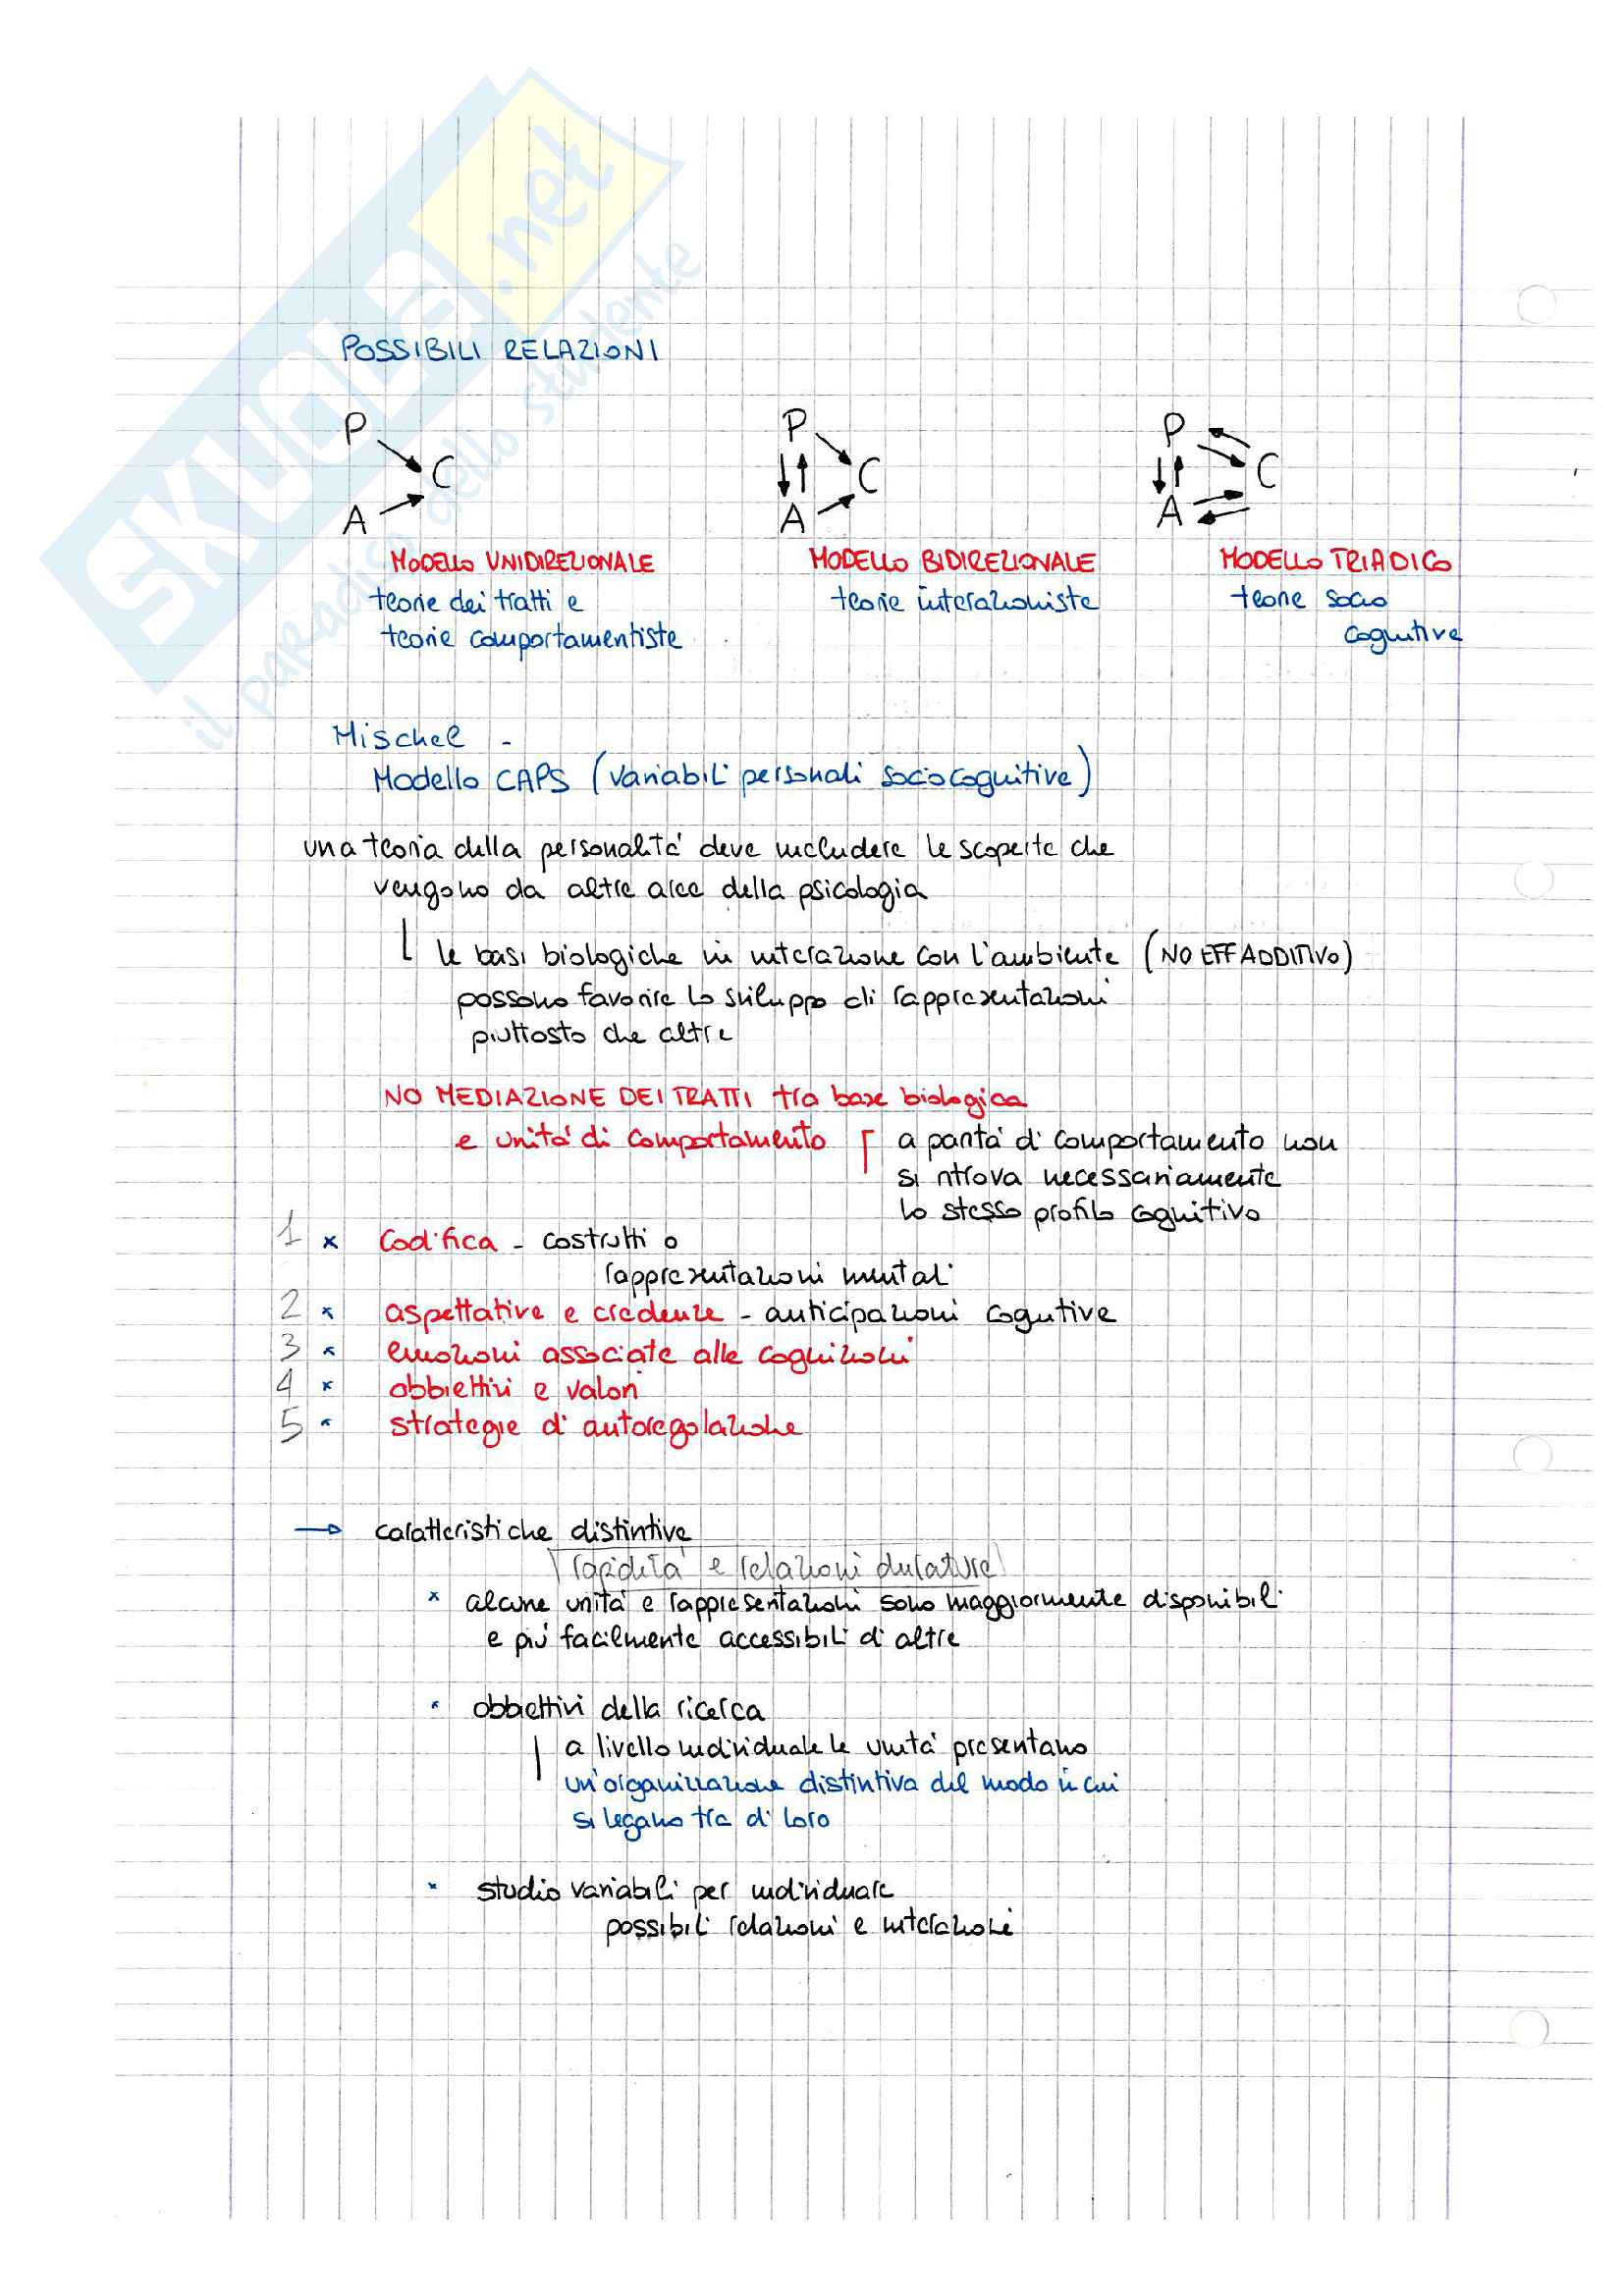 SKUOLA.net
il paradiso dello studente
POSSIBILI RELAZIONI
P P P
C C C
A A A
MODELLO UNIDIREZIONALE MODELLO BIDIREZIONALE MODELLO TRIADICO
teorie dei tratti e teorie interazioniste teorie socio
teorie comportamentiste cognitive
Mischel -
Modello CAPS (variabili personali sociocognitive)
una teoria della personalità deve includere le scoperte che
vengono da altre aree della psicologia
le basi biologiche in interazione con l'ambiente (NO EFF ADDITIVO)
possono favorire lo sviluppo di rappresentazioni
piuttosto che altre
NO MEDIAZIONE DEI TRATTI tra base biologica
e unità di comportamento a parità di comportamento non
si ritrova necessariamente
lo stesso profilo cognitivo
1 x Codifica - costrutti o
rappresentazioni mentali
2 x aspettative e credenze - anticipazioni cogutive
3 x emozioni associate alle cognizioni
4 x obbiettivi e valori
5 x strategie di autoregolazione
→ caratteristiche distintive
rapidità e relazioni durature
x alcune unità e rappresentazioni sono maggiormente disponibili
e più facilmente accessibili di altre
x obbiettivi della ricerca
a livello individuale le unità presentano
un'organizzazione distintiva del modo in cui
si legano tra di loro
x studio variabili per individuare
possibili relazioni e interazioni